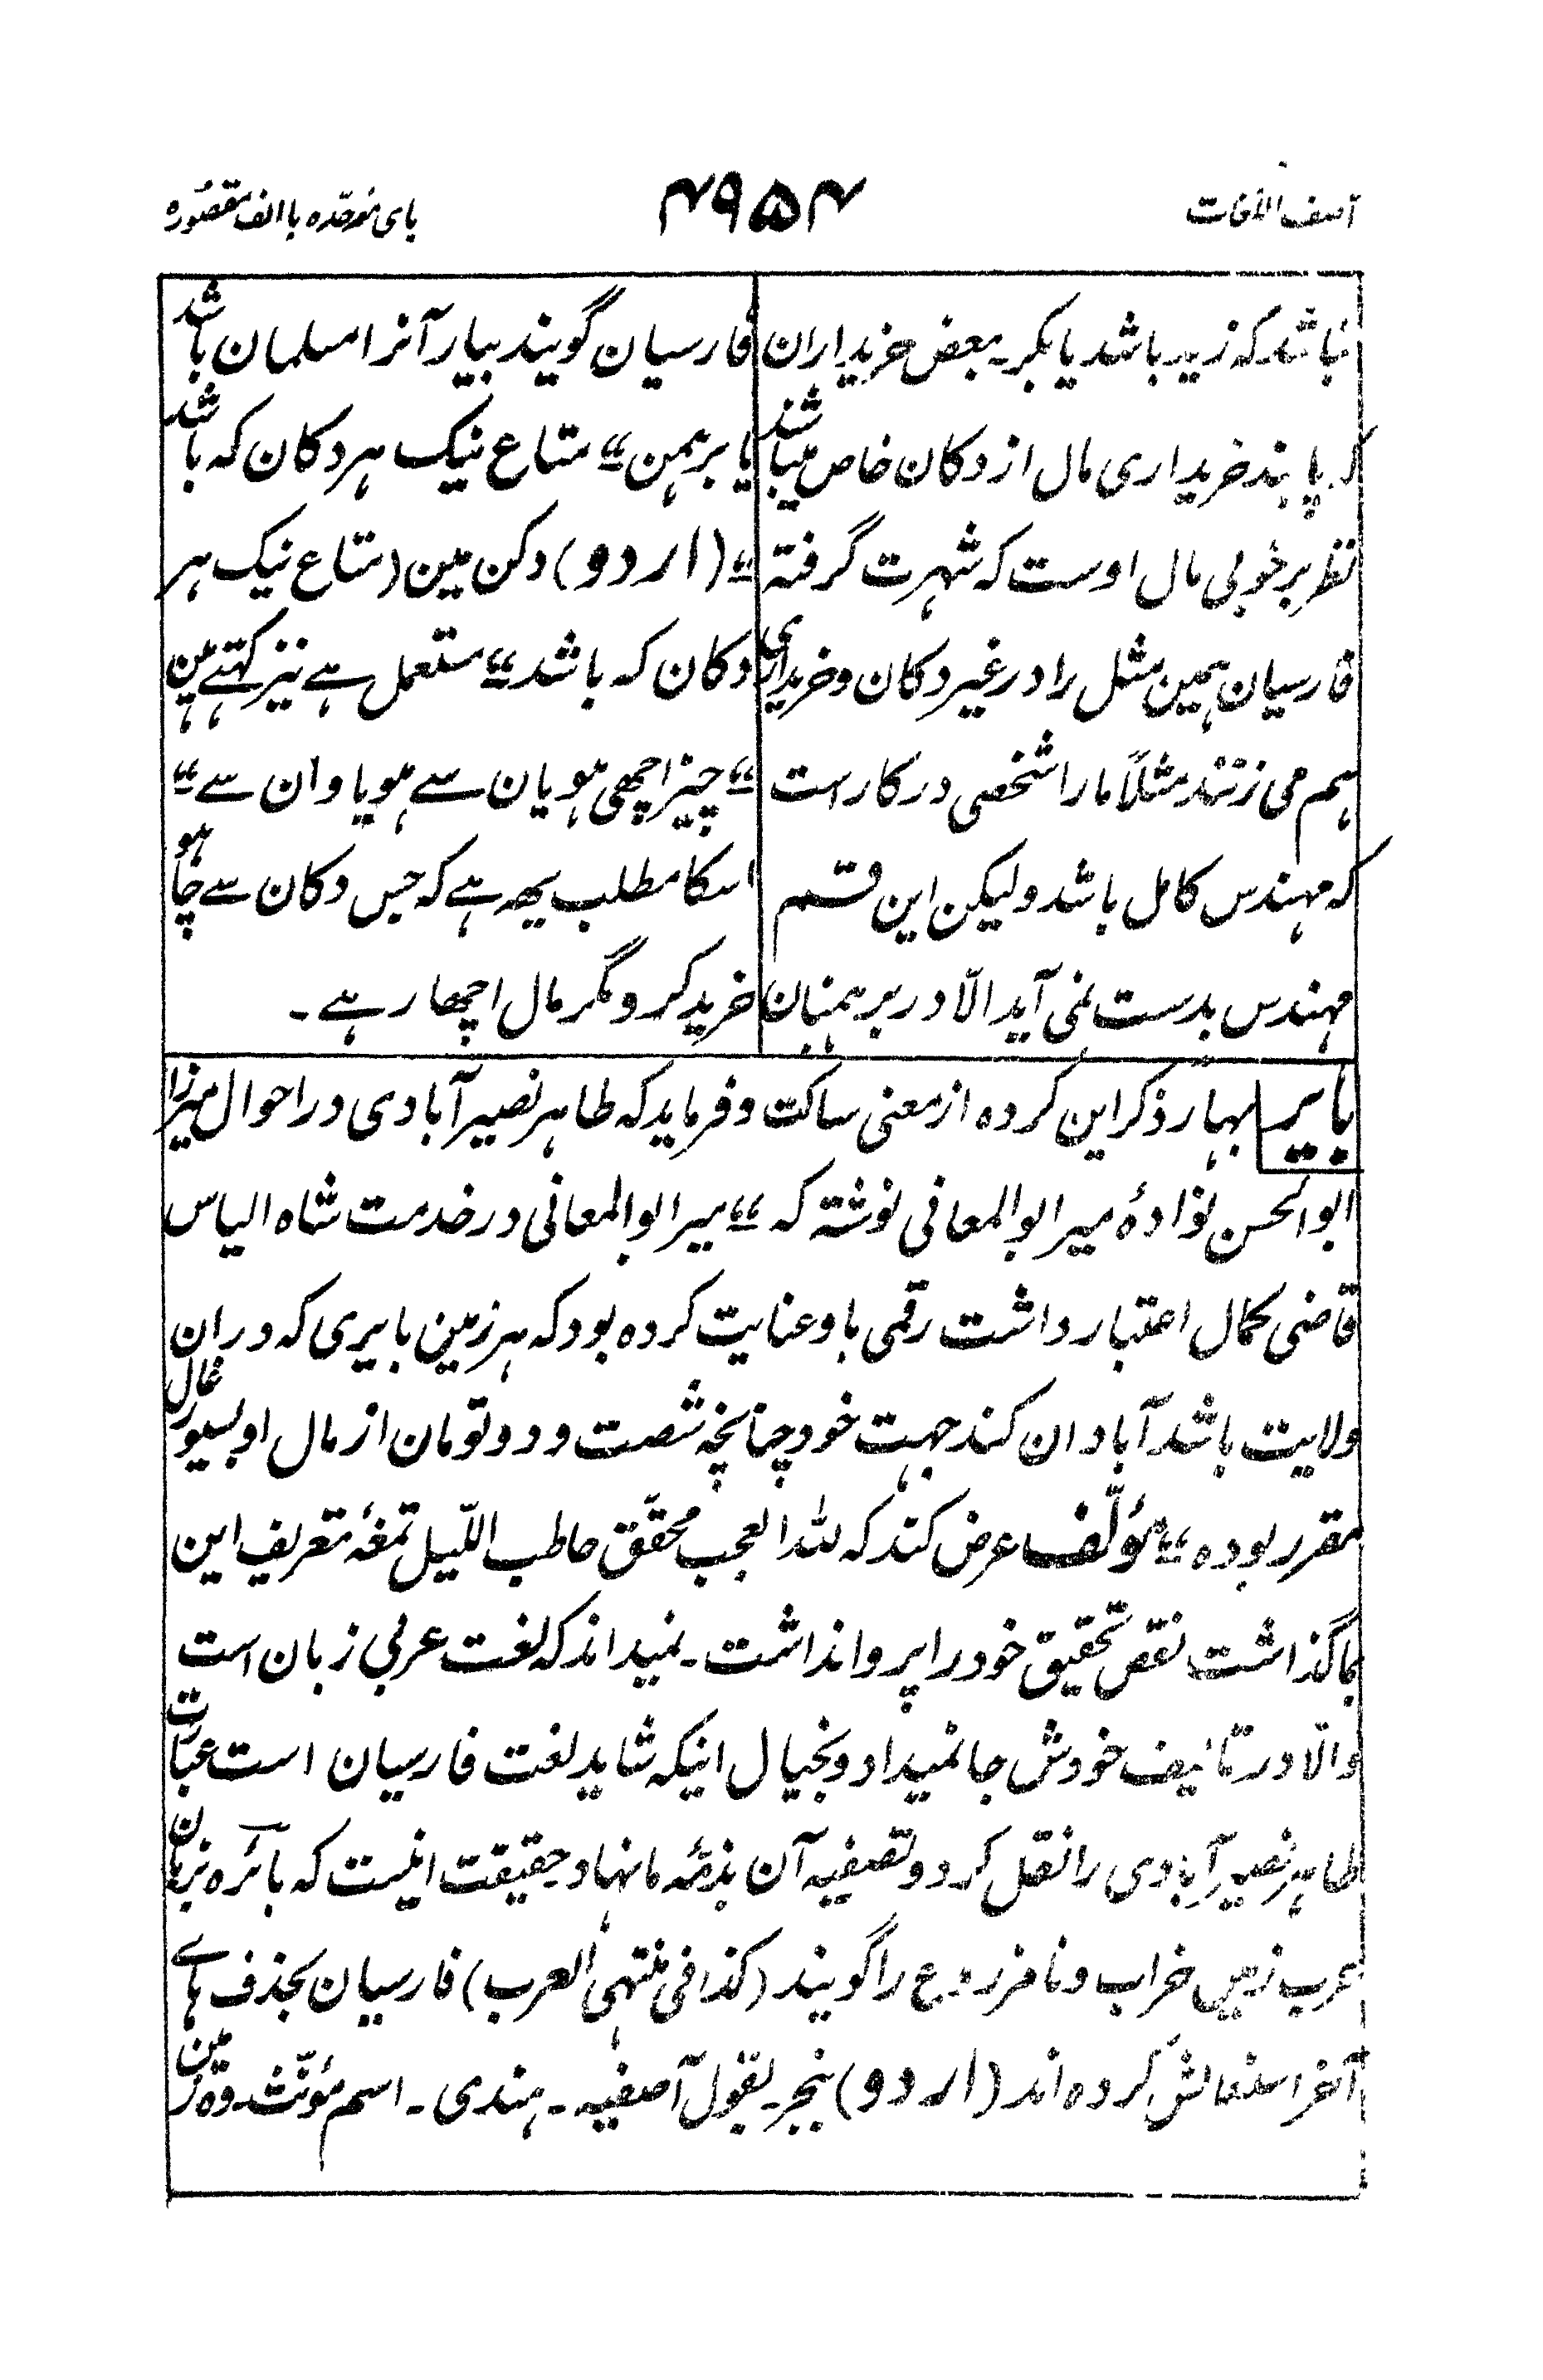 آصف اللغات
۴۹۵۴
بای موحّده با الف مقصوره
نباشد که زید باشد یا بکر۔ بعض خریداران
که پابند خریداری مال از دکان خاص میباشند
نظر بر خوبی مال اوست که شهرت گرفته
فارسیان همین مثل را در غیر دکان و خریداری
هم می زنند مثلاً ما را شخصی در کار است
که مهندس کامل باشد ولیکن این قسم
مهندس بدست نمی آید الّا در برهمنان
فارسیان گویند بیار آنرا مسلمان باشد
یا برهمن “ متاع نیک هر دکان که باشد
“ (اردو) دکن مین (متاع نیک هر
دکان که باشد “ مستعمل ہے نیز کہتے ہین
“ چیز اچھی ہو یان سے ہو یا وان سے “
اسکا مطلب یہہ ہے کہ جس دکان سے چاہو
خرید کرو مگر مال اچھا رہے ۔
بایر بهار ذکر این کرده از معنی ساکت و فرماید که طاهر نصیر آبادی در احوال میرزا
ابوالحسن نوادهٔ میر ابوالمعانی نوشته که “ میر ابوالمعانی در خدمت شاه الیاس
قاضی کمال اعتبار داشت رقمی باو عنایت کرده بود که هر زمین بایری که دران
ولایت باشد آبادان کند جهت خود چنانچه شصت و دو تومان از مال او بسیورغال
مقرر بوده “ مؤلّف عرض کند که للّٰه العجب محقّق حاطب اللّیل تمغهٔ تعریف این
بما گذاشت نقص تحقیق خود را پروا نداشت۔ نمیداند که لغت عربی زبان است
والّا در تالیف خودش جا نمیداد و بخیال اینکه شاید لغت فارسیان است عبارت
طاهر نصیر آبادی را نقل کرد و تصفیه آن بذمّه ما نهاد حقیقت اینست که بائره بزبان
عرب زمین خراب و نا مزروع را گویند (کذا فی منتهی العرب) فارسیان بحذف های
آخر استعمالش کرده اند (اردو) بنجر۔ بقول آصفیه۔ هندی۔ اسم مؤنّث۔ وه زمین